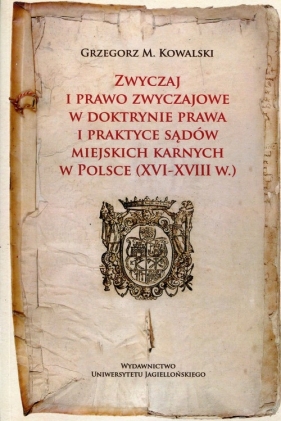 Grzegorz M. Kowalski
Zwyczaj
i prawo zwyczajowe
w doktrynie prawa
i praktyce sądów
miejskich karnych
w Polsce (XVI-XVIII w.)
Wydawnictwo
Uniwersytetu Jagiellońskiego